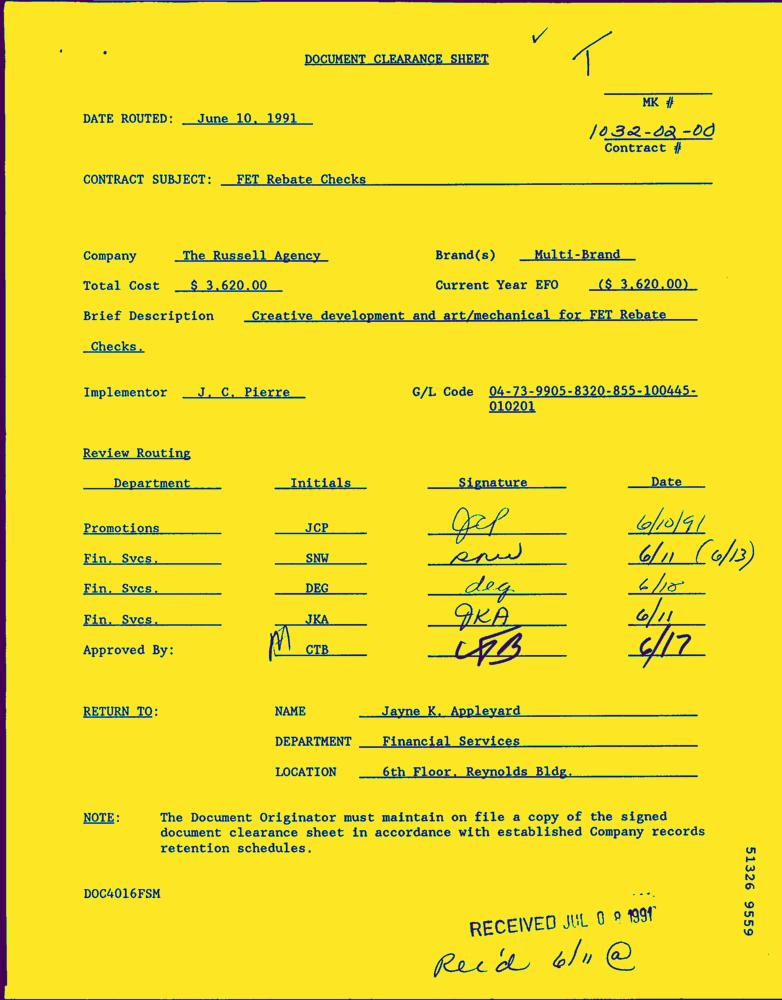 DOCUMENT CLEARANCE SHEET
MK #
DATE ROUTED: June 10, 1991
1032-02-00
Contract #
CONTRACT SUBJECT: FET Rebate Checks
Company The Russell Agency Brand(s) Multi-Brand
Total Cost $ 3,620.00 Current Year EFO ($ 3,620.00)
Brief Description Creative development and art/mechanical for FET Rebate
Checks.
Implementor J. C. Pierre G/L Code 04-73-9905-8320-855-100445-
010201
Review Routing
Department Initials Signature Date
Promotions JCP JCP 6/10/91
Fin. Svcs. SNW snw 6/11 (6/13)
Fin. Svcs. DEG deg 6/10
Fin. Svcs. JKA JKA 6/11
Approved By: M CTB CTB 6/17
RETURN TO: NAME Jayne K. Appleyard
DEPARTMENT Financial Services
LOCATION 6th Floor, Reynolds Bldg.
NOTE: The Document Originator must maintain on file a copy of the signed
document clearance sheet in accordance with established Company records
retention schedules.
51326 9559
DOC4016FSM
RECEIVED JUL 0 1991
Rec'd 6/11 @